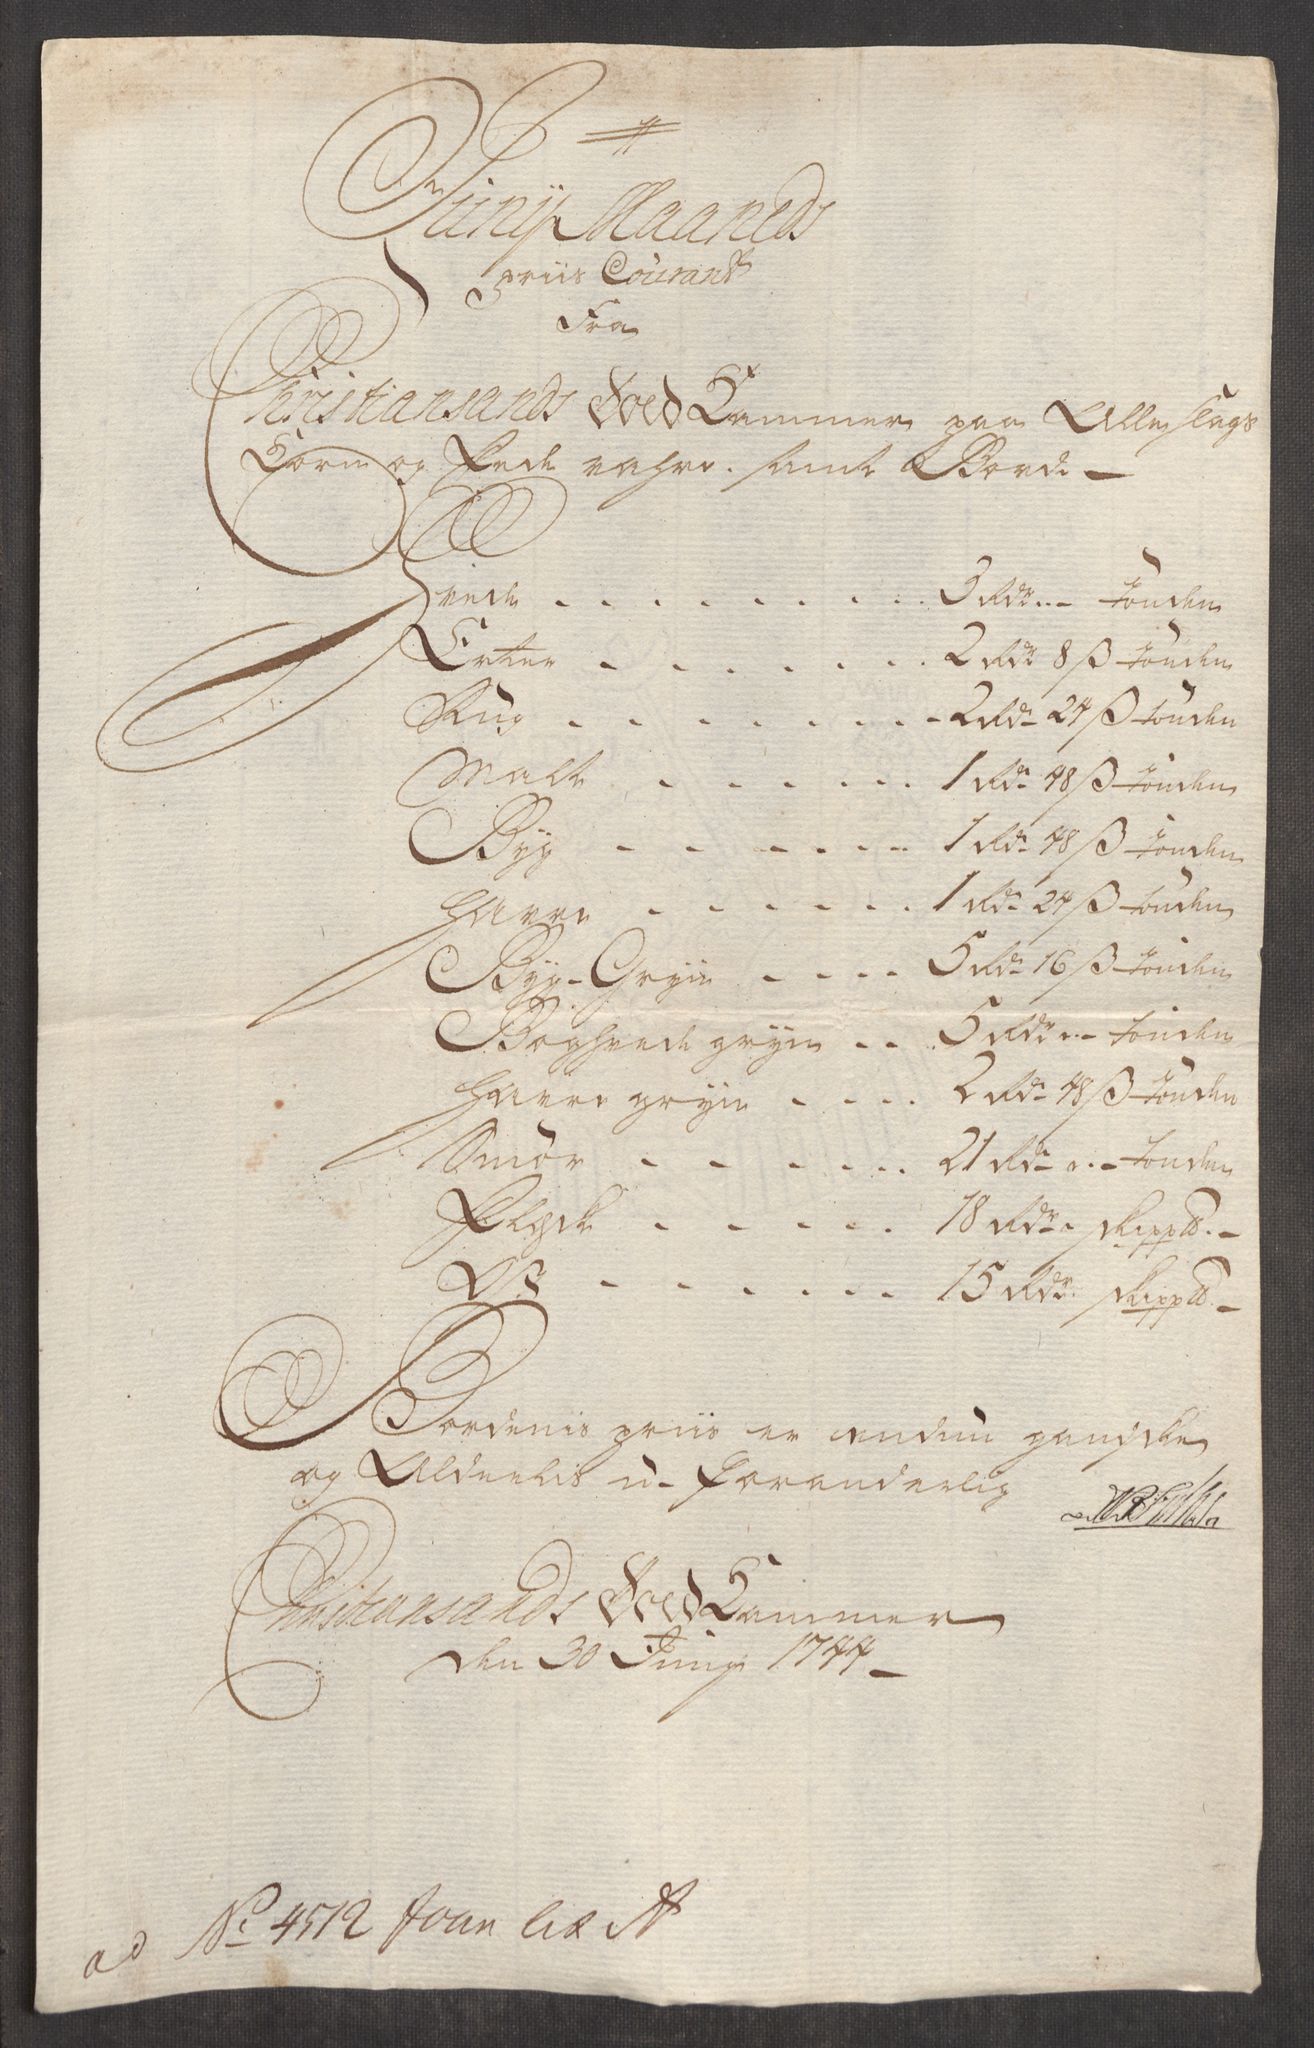 Junij Maaneds
priis Courant
Fra
Christiansands Toed Cammer paa Alle slags
Korn og Fede vahre. samt Bord
Hvede 3 Rdr tønden
Erter 2 Rdr 8 ß tønden
Rug 2 Rdr 24 ß tønden
Malt 1 Rdr 48 ß tønden
Byg 1 Rdr 48 ß tønden
Havre 1 Rdr 24 ß tønden
Byg-Gryn 5 Rdr 16 ß tønden
Boghvede gryn 5 Rdr tønden
Havre gryn 2 Rdr 48 ß tønden
Smør 21 Rdr tønden
Flesk 18 Rdr skipp℔
Ost 15 Rdr skipp℔
Bordenis priis er endnu gandske
og Aldeelis u-foranderlig
Christiansands Toed Cammer
den 30 Junij 1744
ad No 4512 Lit A